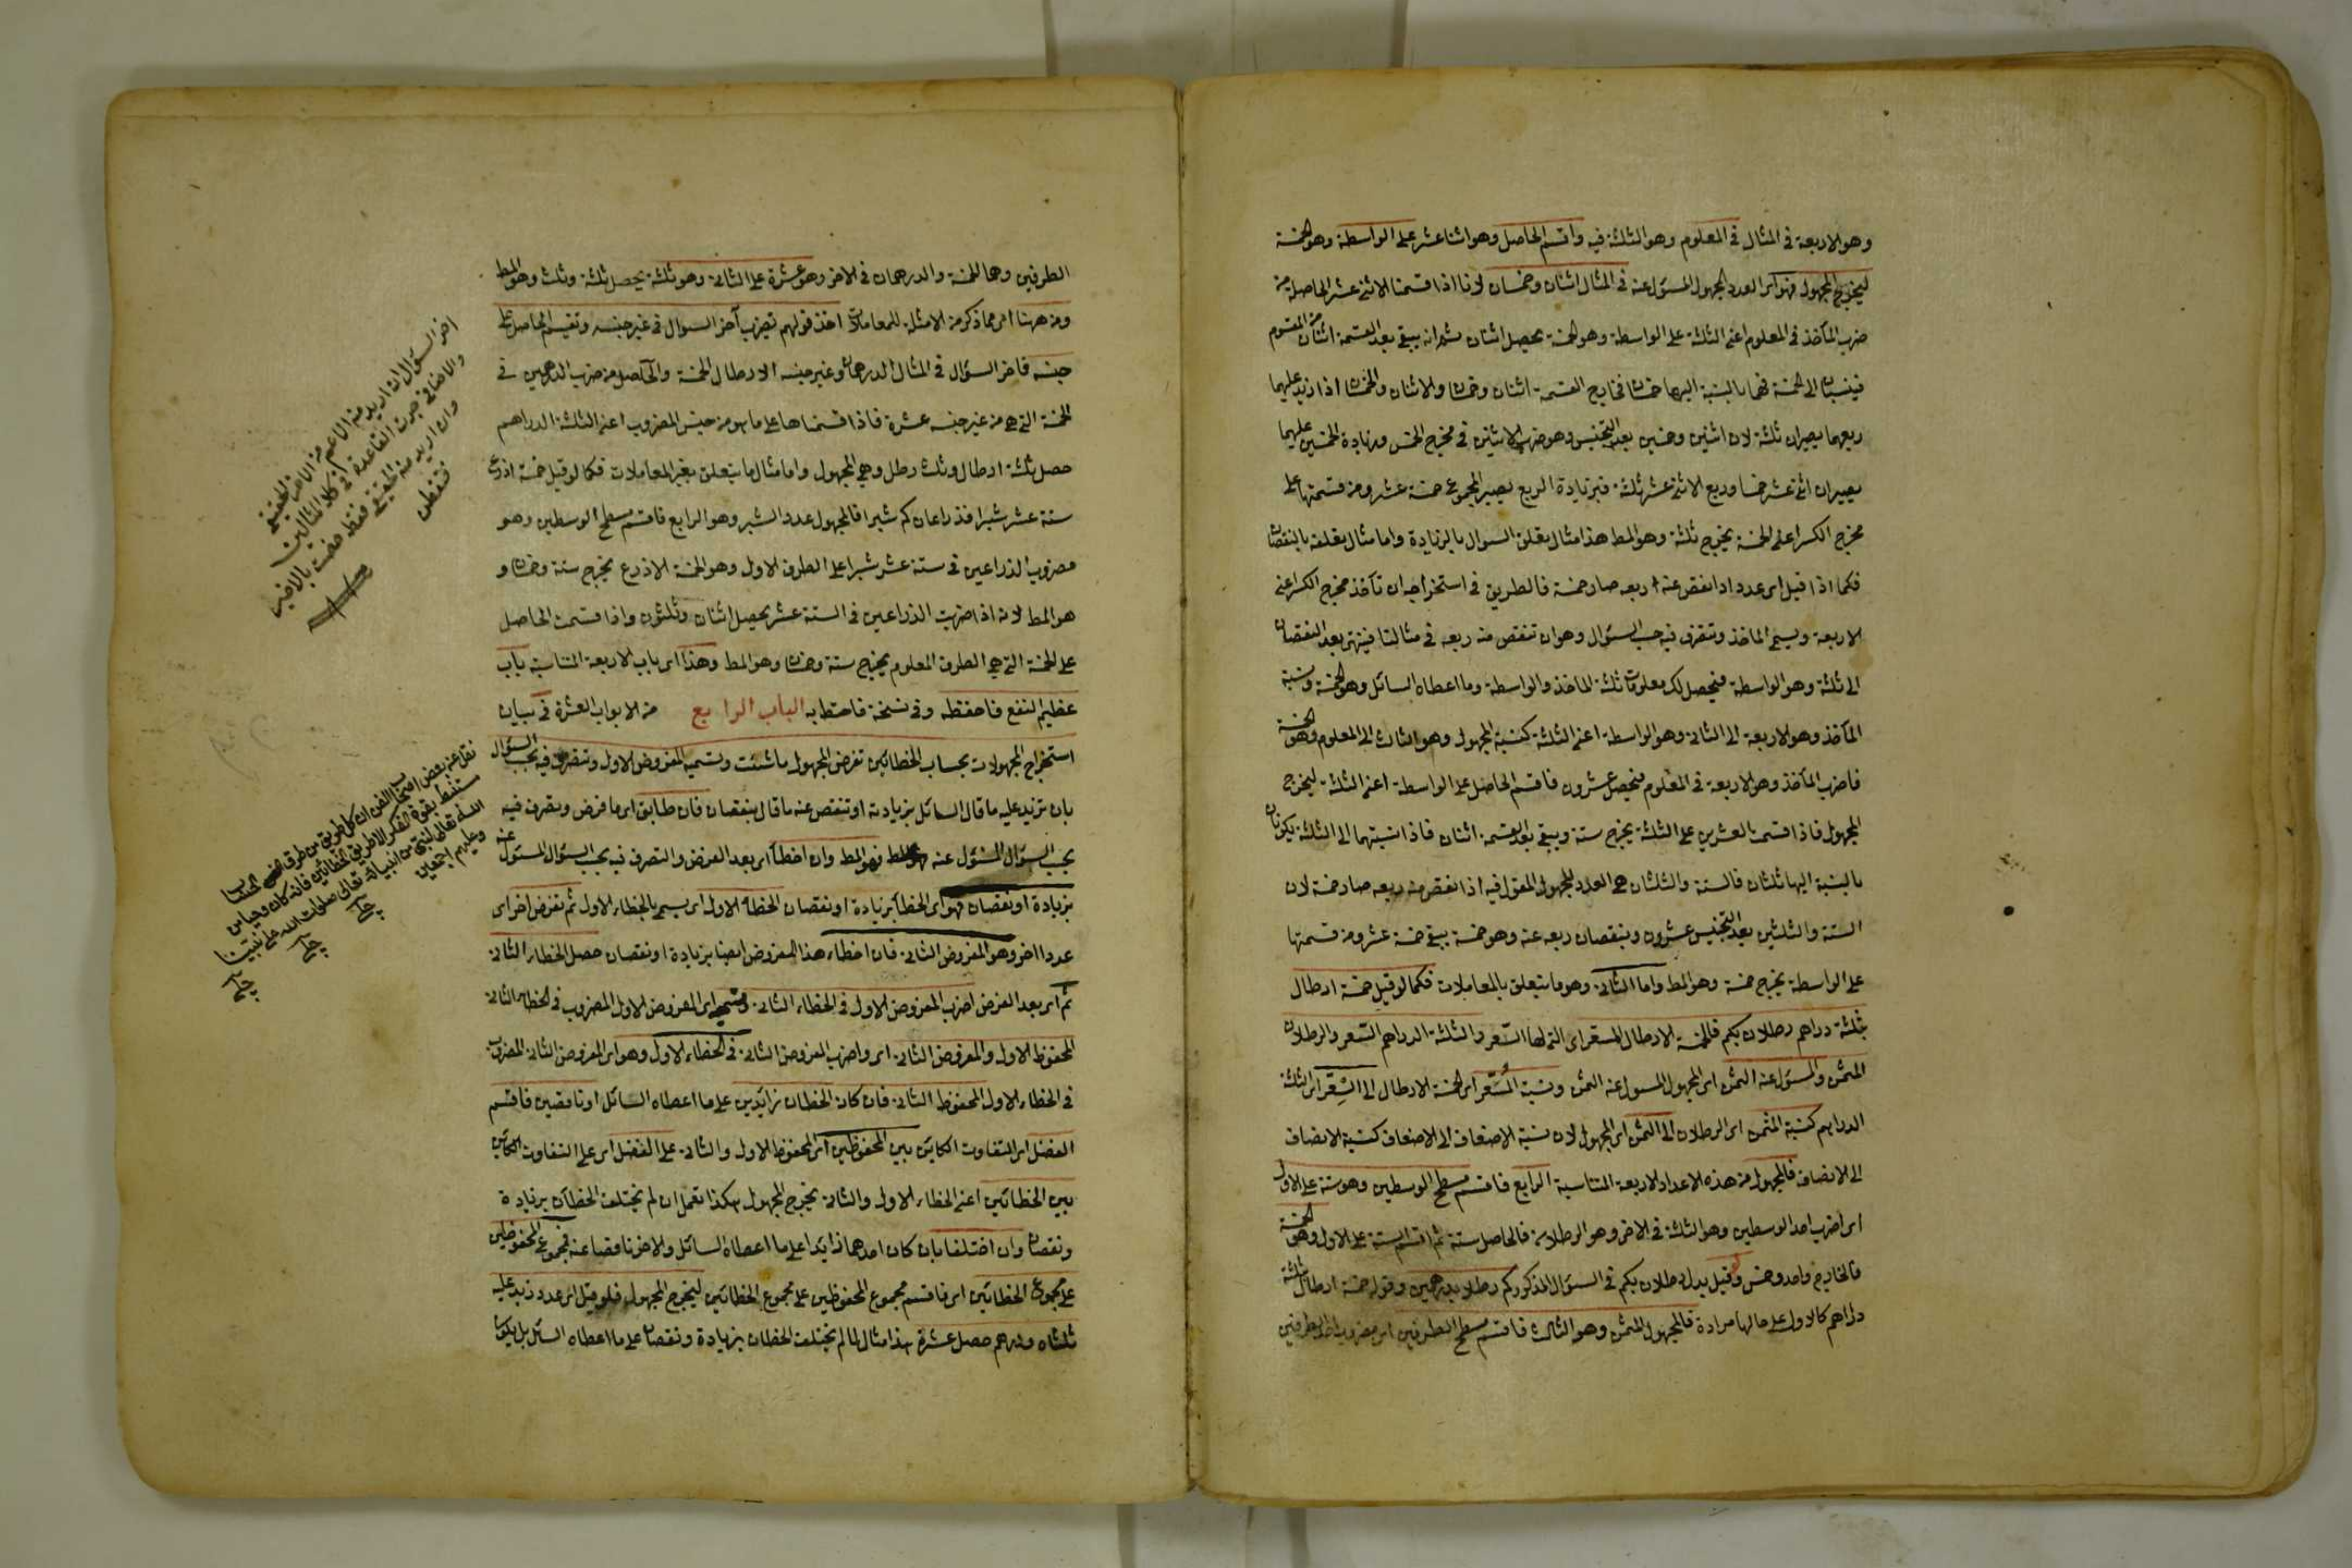 وهو الاربعة في المثال في المعلوم وهو الثلثة فيه واقسم الحاصل وهو اثنا عشر على الواسطة وهو الخمسة
ليخرج المجهول فهو اى العدد المجهول المسؤل عنه في المثال اثنان وخمسان لانا اذا قسمنا الاثنى عشر الحاصلة من
ضرب المأخذ في المعلوم اعنى الثلثة على الواسطة وهو الخمسة يحصل اثنان ثم انه يبقى بعد القسمة اثنان من المقسوم
فينسبان الى الخمسة فهما بالنسبة اليها خمسان فخارج القسمة اثنان وخمسان والاثنان والخمسان اذا زيد عليهما
ربعهما يصيران ثلثة لان اثنين وخمسين بعد التجنيس وهو ضرب الاثنين في مخرج الخمس وزيادة الخمسين عليهما
يصيران اثنى عشر خمسا وربع الاثنى عشر ثلثة فبزيادة الربع يصير المجموع خمسة عشر ومن قسمتها على
مخرج الكسر اعنى الخمسة يخرج ثلثة وهو المط هذا مثال يعلق السوال بالزيادة واما مثال يعلقه بالنقصان
فكما اذا قيل اى عدد اذا نقص عنه ربعه صار خمسة فالطريق في استخراجه ان تأخذ مخرج الكسر اعنى
الاربعة ويسمى الماخذ وتتصرف فيه بحسب السؤال وهو ان تنقص منه ربعه في مثالنا فينتهى بعد النقصان
الى ثلثة وهو الواسطة فيحصل لك معلومات ثلثة الماخذ والواسطة وما اعطاه السائل وهو الخمسة ونسبة
المأخذ وهو الاربعة الى الثانى وهو الواسطة اعنى الثلثة كنسبة المجهول وهو الثالث الى المعلوم وهو الخمسة
فاضرب المأخذ وهو الاربعة في المعلوم فيحصل عشرون فاقسم الحاصل على الواسطة اعنى الثلثة ليخرج
المجهول فاذا قسمت العشرين على الثلثة يخرج ستة ويبقى بعد القسمة اثنان فاذا نسبتهما الى الثلثة يكونان
بالنسبة اليها ثلثان فالستة والثلثان هى العدد المجهول المقول فيه اذا نقص منه ربعه صار خمسة لان
الستة والثلثين بعد التجنيس عشرون وبنقصان ربعه عنه وهو خمسة يبقى خمسة عشر ومن قسمتها
على الواسطة يخرج خمسة وهو المط واما الثانى وهو ما يتعلق بالمعاملات فكما لو قيل خمسة ارطال
بثلثة دراهم رطلان بكم فالخمسة الارطال المسعر اى التى لها السعر والثلثة الدراهم السعر والرطلان
المثمن والمسؤل عنه الثمن اى المجهول المسول عنه الثمن ونسبة المسعر اى الخمسة الارطال الى السعر اى الثلثة
الدراهم كنسبة المثمن اى الرطلان الى الثمن اى المجهول لان نسبة الاضعاف الى الاضعاف كنسبة الانصاف
الى الانصاف فالمجهول من هذه الاعداد الاربعة المتناسبة الرابع فاقسم مسطح الوسطين وهو ستة على الاول
اى اضرب احد الوسطين وهو الثلثة في الاخر وهو الرطلان فالحاصل ستة ثم اقسم الستة على الاول وهو الخمسة
فالخارج واحد وخمس ولو قيل بدل رطلان بكم في السؤال المذكور كم رطلا بدرهمين وقوله خمسة ارطال بثلثة
دراهم كالاول على حالها مرادة فالمجهول المثمن وهو الثالث فاقسم مسطح الطرفين اى مضروب احد الطرفين
الطرفين وهما الخمسة والدرهمان في الاخر وهو عشرة على الثانى وهو ثلثة يحصل ثلثة وثلث وهو المط
ومن ههنا اى مما ذكر من الامثلة للمعاملات اخذ قولهم تضرب آخر السوال في غير جنسه وتقسيم الحاصل على
جنسه فاخر السؤال في المثال الدرهمان وغير جنسه الارطال الخمسة والحاصل من ضرب الدرهمين في
الخمسة التى هى من غير جنسه عشرة فاذا قسمناها على ما هو من جنس المضروب اعنى الثلثة الدراهم
حصل ثلثة ارطال وثلث رطل وهى المجهول واما مثال ما يتعلق بغير المعاملات فكما لو قيل خمسة اذرع
ستة عشر شبرا فذراعان كم شبرا فالمجهول عدد الشبر وهو الرابع فاقسم مسطح الوسطين وهو
مضروب الذراعين في ستة عشر شبرا على الطرف الاول وهو الخمسة الاذرع يخرج ستة وخمسان و
هو المط لانه اذا ضربت الذراعين في الستة عشر يحصل اثنان وثلثون واذا قسمت الحاصل
على الخمسة التى هى الطرف المعلوم يخرج ستة وخمسان وهو المط وهذا اى باب الاربعة المتناسبة باب
عظيم النفع فاحفظه وفى نسخة فاحتفظ به الباب الرابع من الابواب العشرة في بيان
استخراج المجهولات بحساب الخطائين تفرض المجهول ما شئت وتسميه المفروض الاول وتتصرف فيه بحسب السؤال
بان تزيد عليه ما قال السائل بزيادته او تنقص عنه ما قال بنقصان فان طابق اى ما فرض وتصرف فيه
بحسب السؤال المسؤل عنه فهو المط وان اخطأ اى بعد الفرض والتصرف فيه بحسب السؤال المسؤل عنه
بزيادة او نقصان فهو اى الخطأ بزيادة او نقصان الخطاء الاول اى يسمى بالخطاء الاول ثم تفرض اخر اى
عددا اخر وهو المفروض الثانى فان اخطاء هذا المفروض ايضا بزيادة او نقصان حصل الخطاء الثانى
ثم اى بعد الفرض اضرب المفروض الاول في الخطاء الثانى وتسميه اى المفروض الاول المضروب في الخطاء الثانى
المحفوظ الاول والمفروض الثانى اى واضرب المفروض الثانى في الخطاء الاول وهو اى المفروض الثانى المضروب
في الخطاء الاول المحفوظ الثانى فان كان الخطان زائدين على ما اعطاه السائل او ناقصين فاقسم
الفضل اى التفاوت الكاين بين المحفوظين اى المحفوظ الاول والثانى على الفضل اى على التفاوت الكاين
بين الخطائين اعنى الخطاء الاول والثانى يخرج المجهول هكذا تعمل ان لم يختلف الخطآن بزيادة
ونقصان وان اختلفا بان كان احدهما زايدا على ما اعطاه السائل والاخر ناقصا عنه فمجموع المحفوظين
على مجموع الخطائين اى فاقسم مجموع المحفوظين على مجموع الخطائين ليخرج المجهول فلو قيل اى عدد زيد عليه
ثلثاه ودرهم حصل عشرة هذا مثال لما لم يختلف الخطان بزيادة ونقصان على ما اعطاه السائل بل يكون
اخر السؤال ان اريد منه الاعم من الاخر الحقيقي
والاضافي جرت القاعدة في كلا المثالين
وان اريد منه الحقيقي فقط خصت بالاخير
فتفطن
نقل عن بعض اصحاب الفن ان كل طريق من طرق الحساب
مستنبط بقوة الفكر الا طريق الخطائين فانه كان وحيا من
الله تعالى لنبى من انبيائه تعالى صلوات الله على نبينا
وعليهم اجمعين